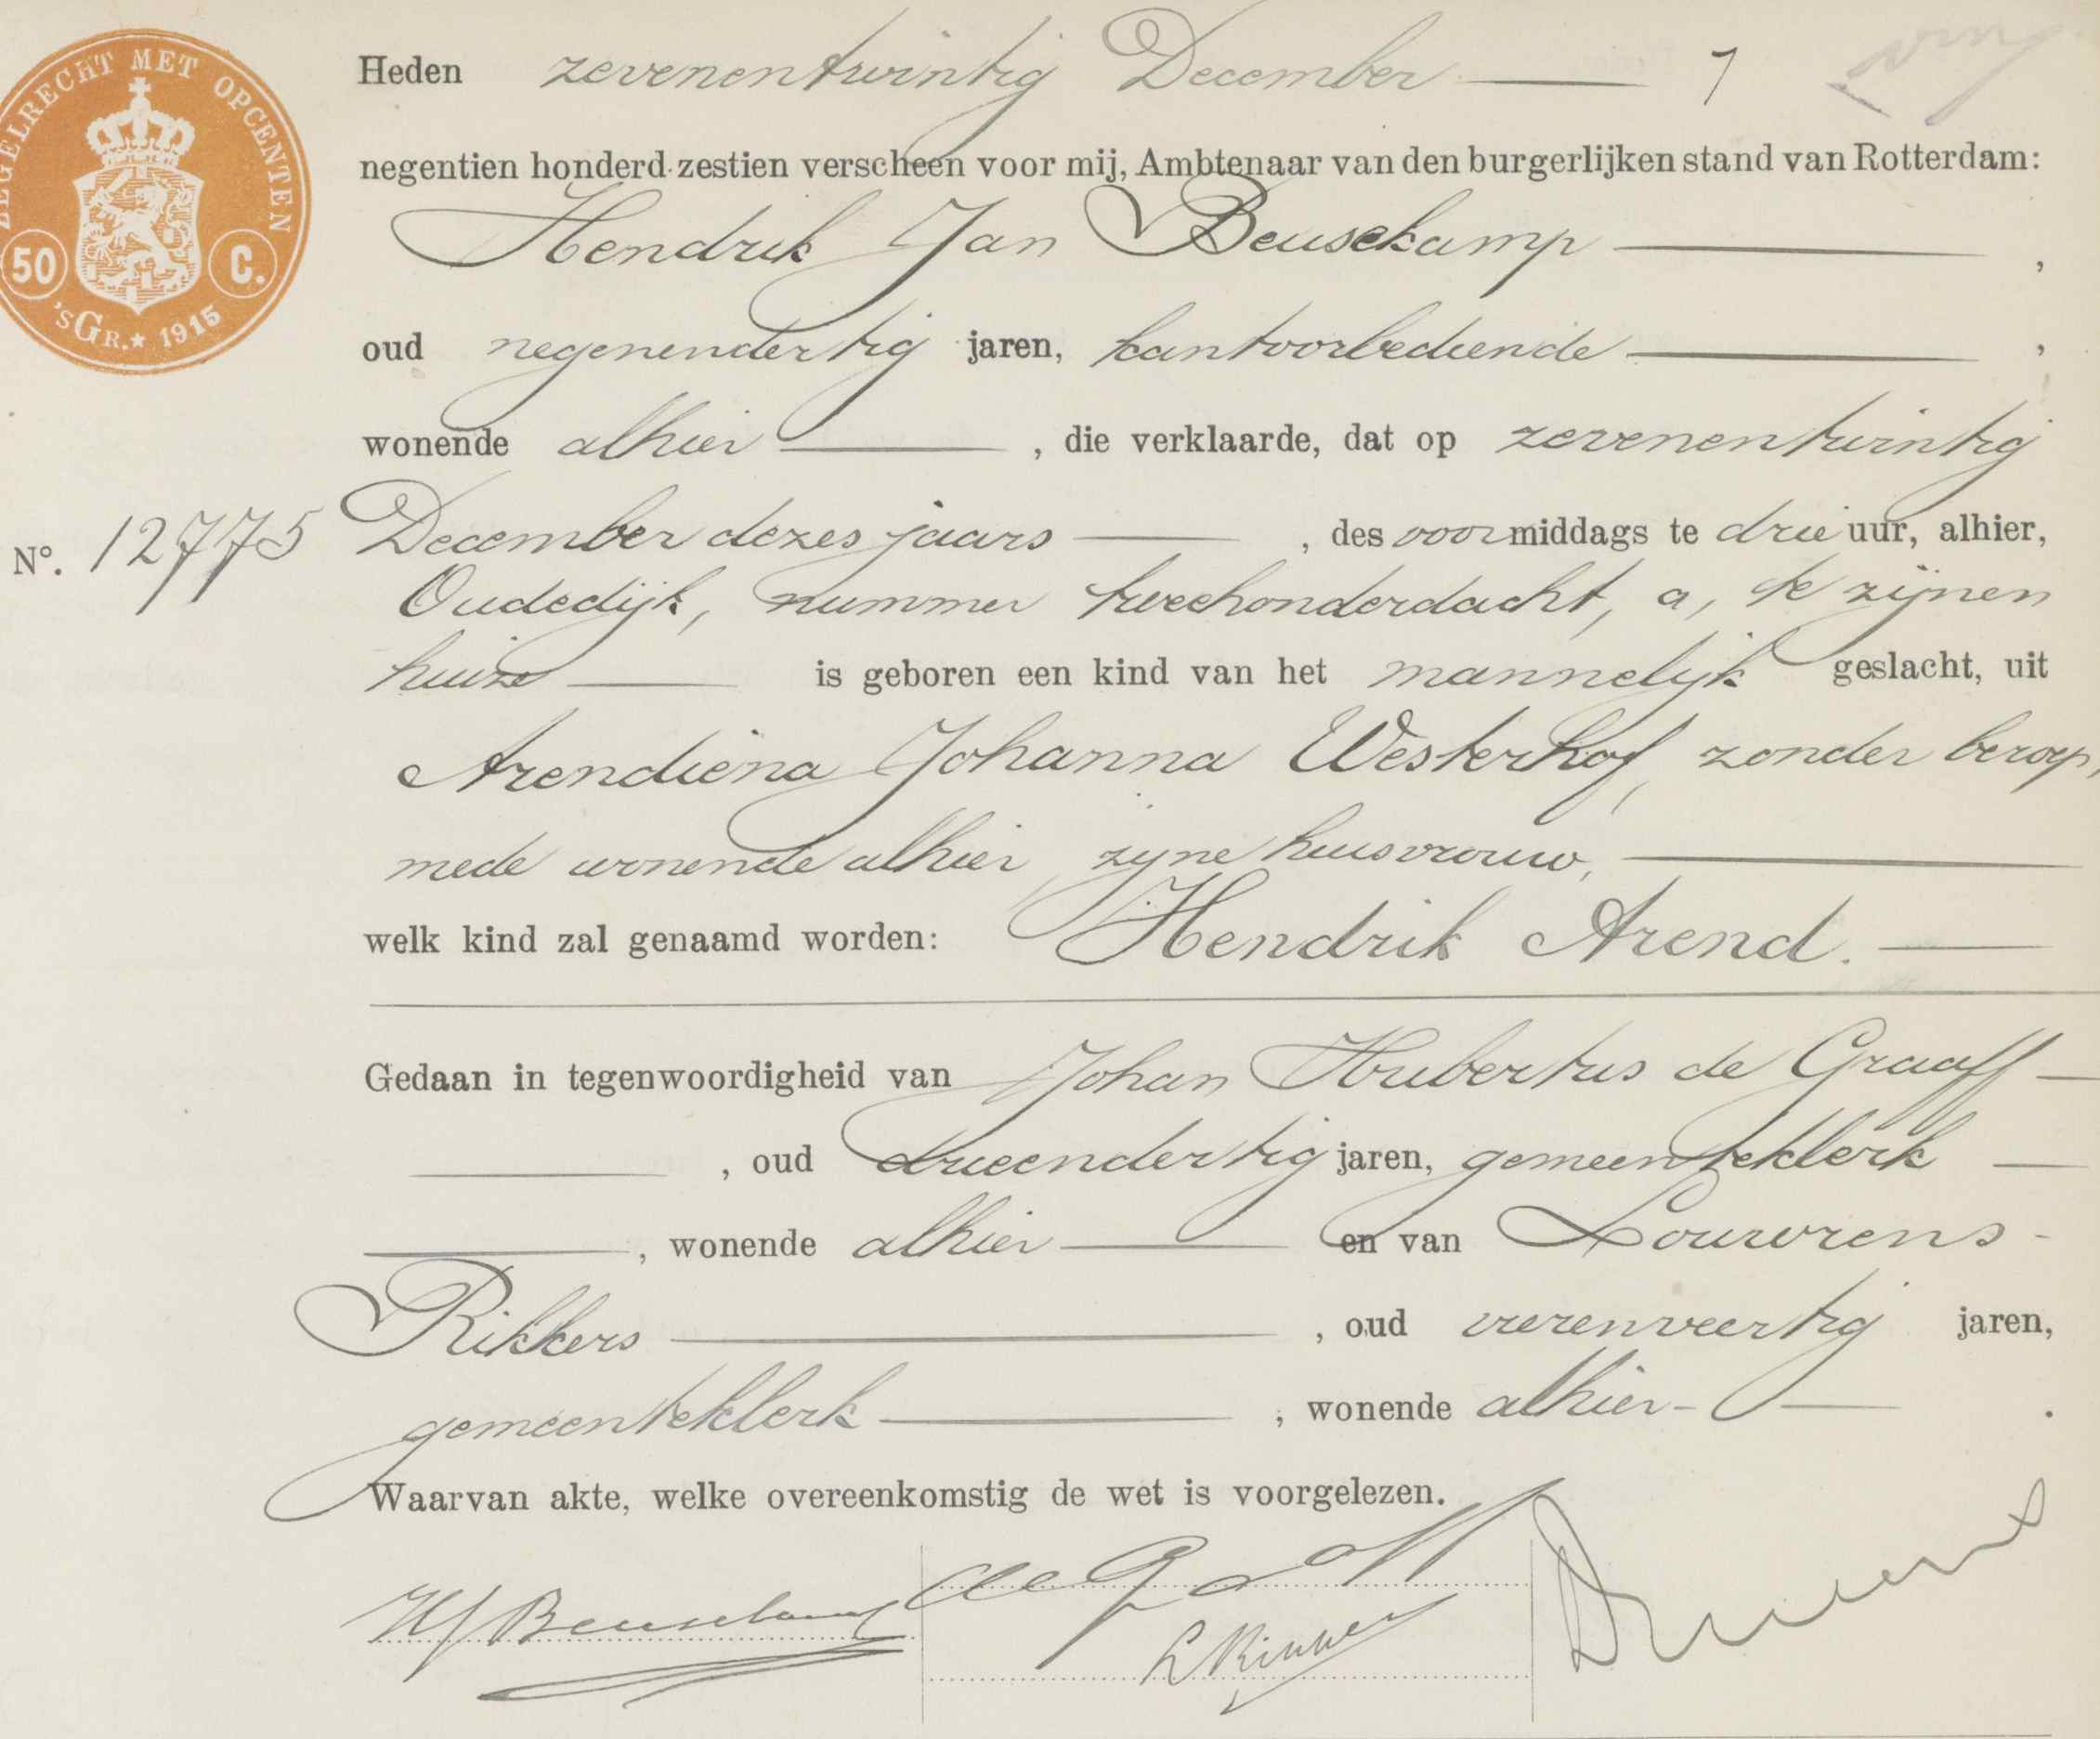 ZEGELRECHT MET OPCENTEN
50 C.
'sGR.★ 1915
Heden zevenentwintig December
negentien honderd zestien verscheen voor mij, Ambtenaar van den burgerlijken stand van Rotterdam:
Hendrik Jan Beusekamp ,
oud negenendertig jaren, kantoorbediende ,
wonende alhier , die verklaarde, dat op zevenentwintig
Nº. 12775 December dezes jaars , des voormiddags te drie uur, alhier,
Oudedijk, nummer tweehonderdacht, a, te zijnen
huize is geboren een kind van het mannelijk geslacht, uit
Arendiena Johanna Westerhof, zonder beroep,
mede wonende alhier, zijne huisvrouw,
welk kind zal genaamd worden: Hendrik Arend.
Gedaan in tegenwoordigheid van Johan Hubertus de Graaff
, oud drieendertig jaren, gemeenteklerk
, wonende alhier en van Louwrens
Rikkers , oud vierenveertig jaren,
gemeenteklerk , wonende alhier .
Waarvan akte, welke overeenkomstig de wet is voorgelezen.
HJ Beusekamp de Graaff
L Rikkers